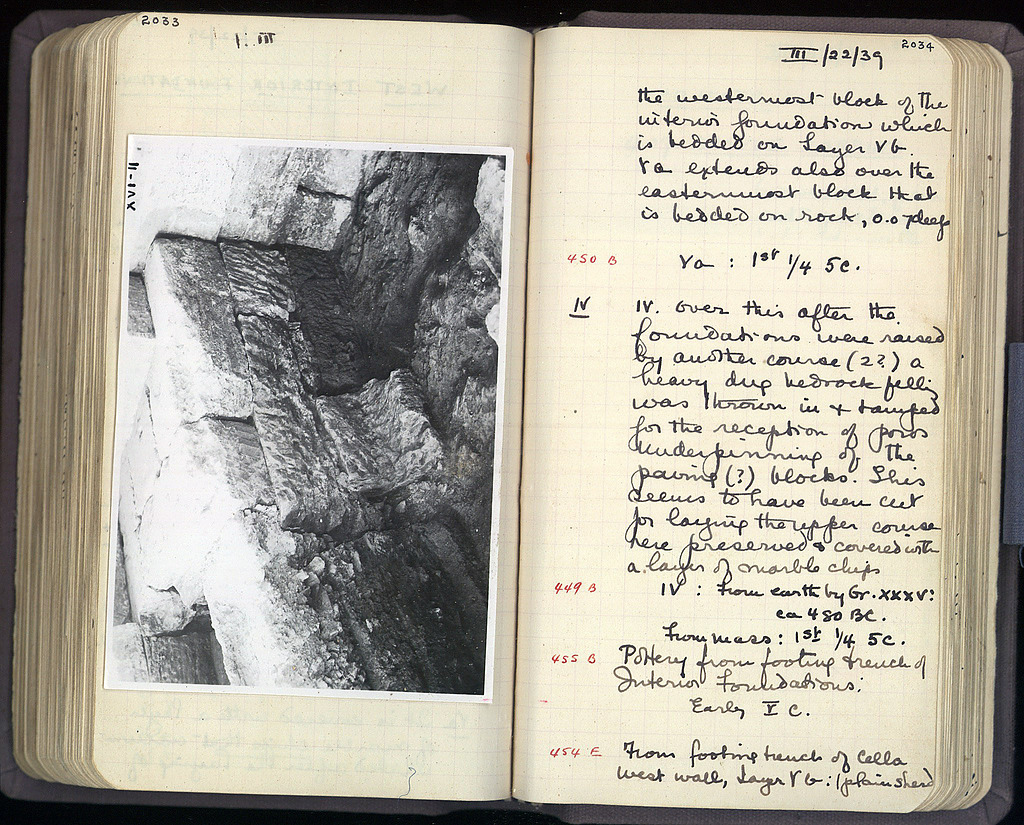 2033
XVI-11
2034
III/22/39
the westermost block of the
interior foundation which
is bedded on Layer Vb.
Va extends also over the
easternmost block that
is bedded on rock, 0.07 deep
450 B Va : 1st 1/4 5c.
IV IV. over this after the
foundations were raised
by another course (2?) a
heavy dug bedrock filling
was thrown in & tamped
for the reception of poros
underpinning of the
paving (?) blocks. This
seems to have been cut
for laying the upper course
here preserved & covered with
a layer of marble chips
449 B IV : From earth by Gr. XXXV:
ca 480 BC.
From mass: 1st 1/4 5c.
455 B Pottery from footing trench of
Interior Foundations:
Early V c.
454 E From footing trench of Cella
west wall, Layer Vb: (plain sherd